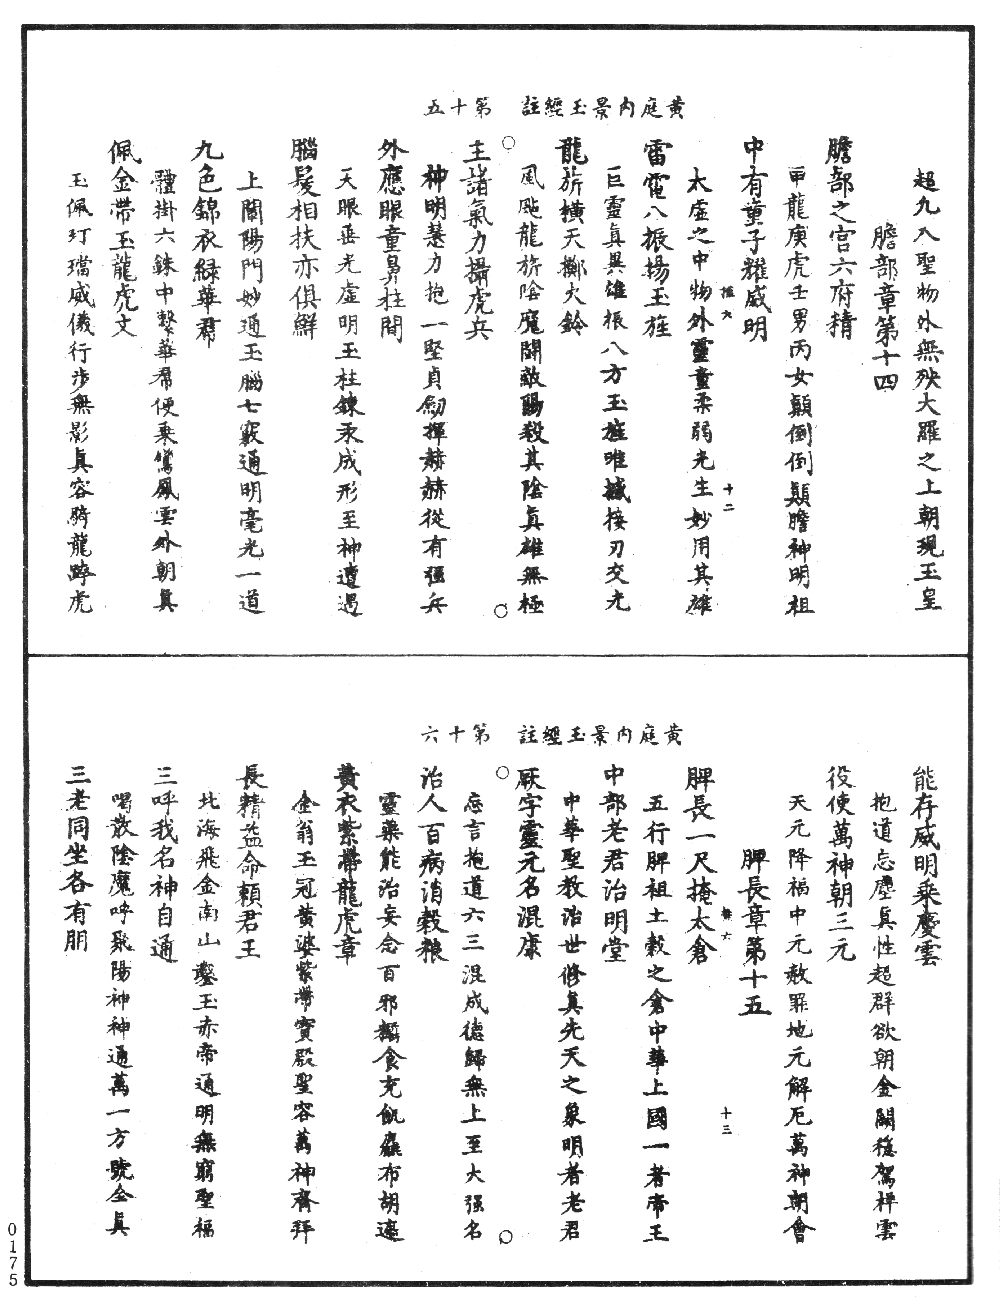 黃庭內景玉經註　第十五
超九入聖物外無殃大羅之上朝現玉皇
膽部章第十四
膽部之宮六府精
甲龍庚虎壬男丙女顛倒倒顛膽神明祖
中有童子耀威明
十二
太虛之中物外靈童柔弱先生妙用其雄
雷電八振揚玉旌
巨靈真異雄振八方玉旌唯撼按刃交光
龍旂橫天擲火鈴
風颭龍旂陰魔鬭敵陽殺其陰真雄無極
主諸氣力攝虎兵
神明慧力抱一堅貞劒揮赫赫從有強兵
外應眼童鼻柱間
天眼垂光虛明玉柱鍊汞成形至神遭遇
腦髮相扶亦俱鮮
上闔陽門妙通玉腦七竅通明毫光一道
九色錦衣綠華裙
體掛六銖中繫華帬便乘鸞鳳雲外朝真
佩金帶玉龍虎文
玉佩玎璫威儀行步無影真容騎龍跨虎
黃庭內景玉經註　第十六
能存威明乘慶雲
抱道忘塵真性超群欲朝金闕穩駕祥雲
役使萬神朝三元
天元降福中元赦罪地元解厄萬神朝會
脾長章第十五
十三
脾長一尺掩太倉
五行脾祖土穀之倉中華上國一者帝王
中部老君治明堂
中華聖教治世修真先天之象明者老君
厥字靈元名混康
忘言抱道六三混成德歸無上至大強名
治人百病消穀粮
靈藥能治妄念百邪糲食充飢麤布胡遮
黃衣紫帶龍虎章
金翁玉冠黃婆紫帶寶殿聖容萬神齊拜
長精益命賴君王
北海飛金南山鑿玉赤帝通明無窮聖福
三呼我名神自通
喝散陰魔呼聚陽神神通萬一方號全真
三老同坐各有朋
0175